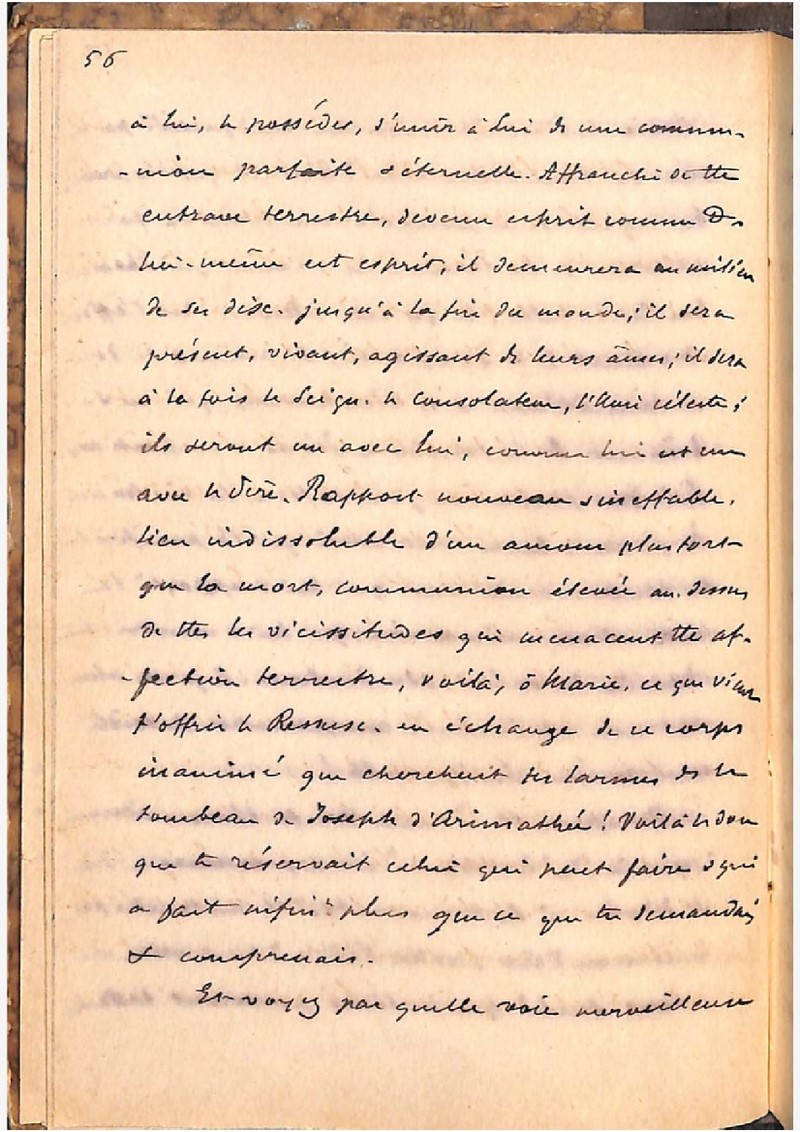 56
à lui, le posséder, s'unir à Lui ds une commu-
-nion parfaite & éternelle. Affranchi de tte
entrave terrestre, devenu esprit comme D.
lui-même est esprit, il demeurera au milieu
de ses disc. jusqu'à la fin du monde; il sera
présent, vivant, agissant ds leurs âmes; il sera
à la fois le Seign. le Consolateur, l'Ami céleste;
ils seront un avec lui, comme lui est un
avec le Père. Rapport nouveau & ineffable,
lien indissoluble d'un amour plus fort
que la mort, communion élevée au-dessus
de ttes les vicissitudes qui menacent tte af-
-fection terrestre, voilà, ô Marie, ce que vient
t'offrir le Ressusc. en échange de ce corps
inanimé que cherchait tes larmes ds le
tombeau de Joseph d'Arimathée! Voilà le don
que te réservait celui qui peut faire & qui
a fait infin^t plus que ce que tu demandais
& comprenais.
Et voyez par quelle voie merveilleuse